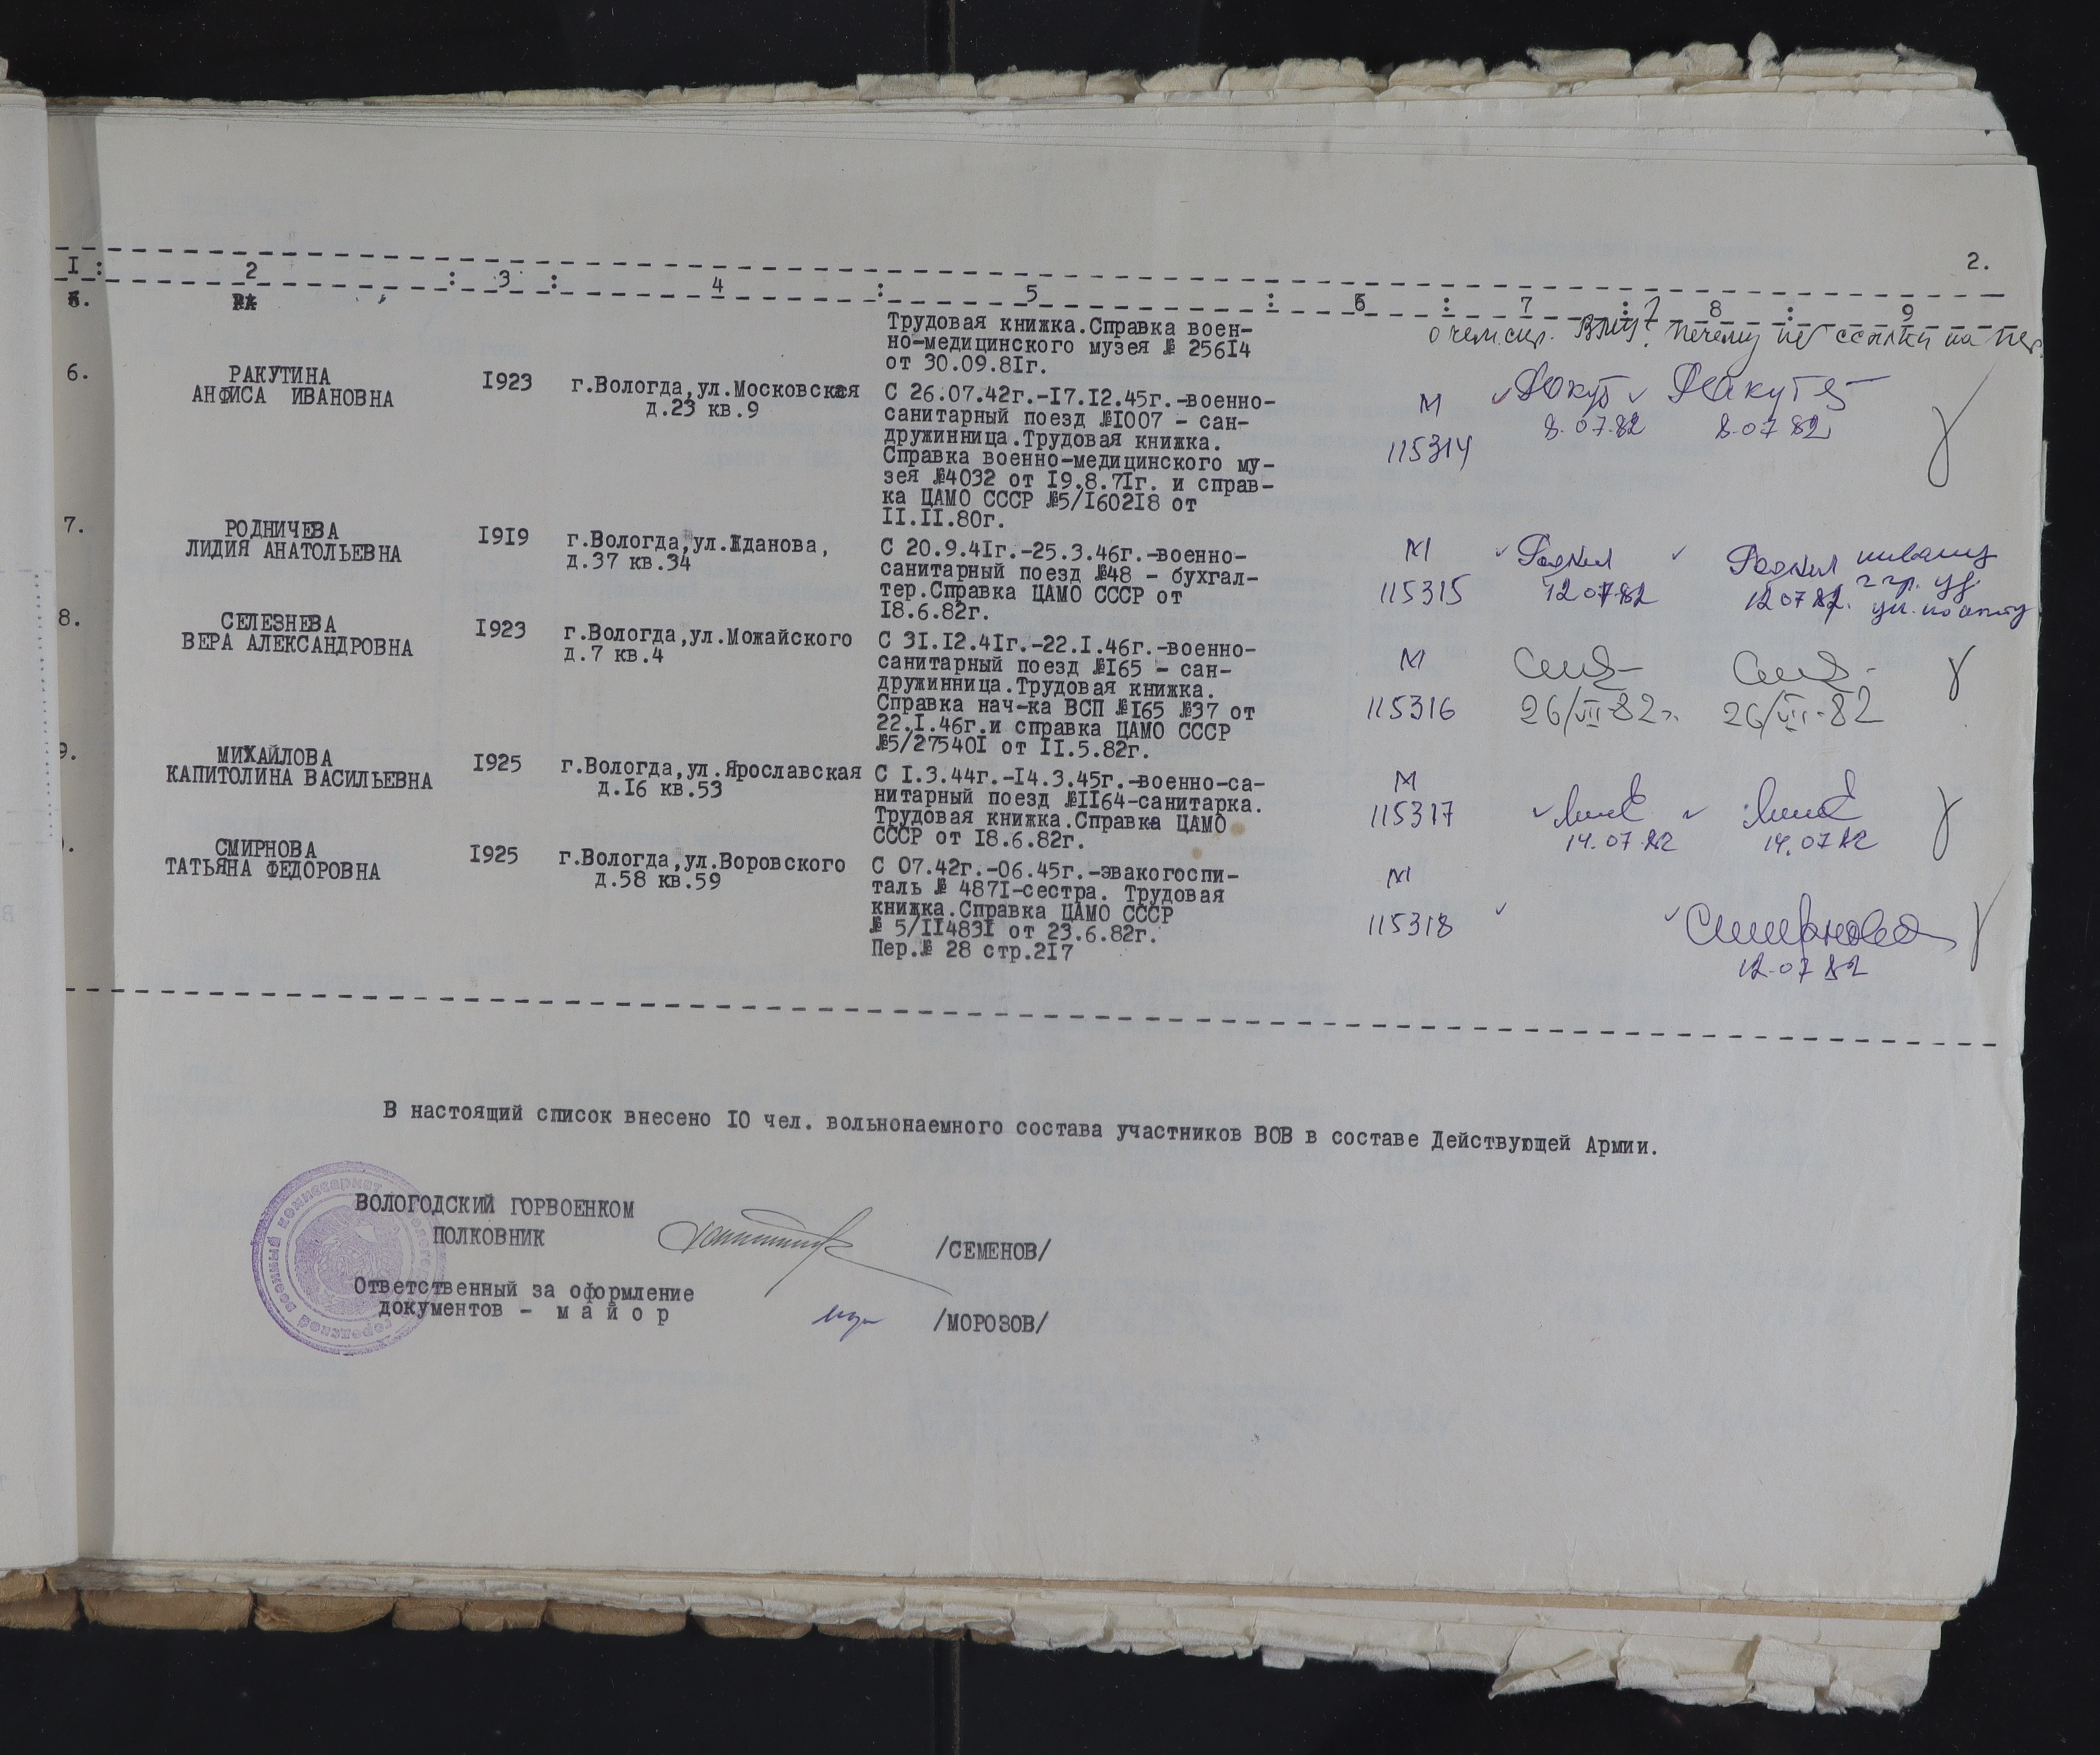 2.
I : 2 : 3 : 4 : 5 : 6 : 7 : 8 : 9
Трудовая книжка.Справка воен-
но-медицинского музея № 25614
от 30.09.81г.
6. РАКУТИНА
АНФИСА ИВАНОВНА
I923
г.Вологда,ул.Московская
д.23 кв.9
С 26.07.42г.-I7.I2.45г.-военно-
санитарный поезд №I007 - сан-
дружинница.Трудовая книжка.
Справка военно-медицинского му-
зея №4032 от I9.8.7Iг. и справ-
ка ЦАМО СССР №5/I602I8 от
II.II.80г.
М
115314
8.07.82
8.07.82
7. РОДНИЧЕВА
ЛИДИЯ АНАТОЛЬЕВНА
I9I9
г.Вологда,ул.Жданова,
д.37 кв.34
С 20.9.4Iг.-25.3.46г.-военно-
санитарный поезд №48 - бухгал-
тер.Справка ЦАМО СССР от
I8.6.82г.
М
115315
12.07.82
12.07.82.
8. СЕЛЕЗНЕВА
ВЕРА АЛЕКСАНДРОВНА
I923
г.Вологда,ул.Можайского
д.7 кв.4
С 3I.I2.4Iг.-22.I.46г.-военно-
санитарный поезд №I65 - сан-
дружинница.Трудовая книжка.
Справка нач-ка ВСП №I65 №37 от
22.I.46г.и справка ЦАМО СССР
№5/27540I от II.5.82г.
М
115316
26/VII-82г.
26/VII-82
9. МИХАЙЛОВА
КАПИТОЛИНА ВАСИЛЬЕВНА
I925
г.Вологда,ул.Ярославская
д.I6 кв.53
С I.3.44г.-I4.3.45г.-военно-са-
нитарный поезд №II64-санитарка.
Трудовая книжка.Справка ЦАМО
СССР от I8.6.82г.
М
115317
14.07.82
14.07.82
СМИРНОВА
ТАТЬЯНА ФЕДОРОВНА
I925
г.Вологда,ул.Воровского
д.58 кв.59
С 07.42г.-06.45г.-эвакогоспи-
таль № 487I-сестра. Трудовая
книжка.Справка ЦАМО СССР
№ 5/II483I от 23.6.82г.
Пер.№ 28 стр.2I7
М
115318
Смирнова
12.07.82
В настоящий список внесено I0 чел. вольнонаемного состава участников ВОВ в составе Действующей Армии.
ВОЛОГОДСКИЙ ГОРВОЕНКОМ
ПОЛКОВНИК /СЕМЕНОВ/
Ответственный за оформление
документов - м а й о р /МОРОЗОВ/